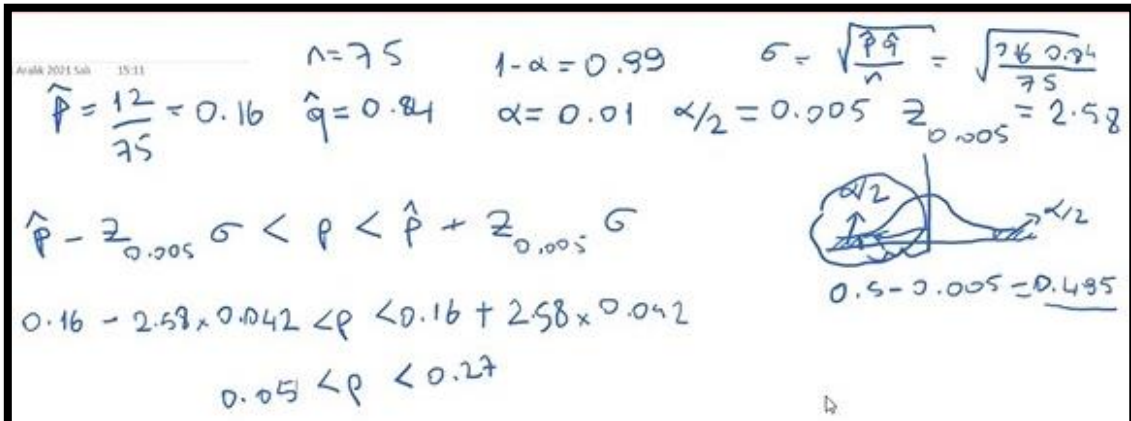 Aralık 2021 Salı 15:11
n=75 1-α=0.99 σ = √(p̂ q̂ / n) = √(.16 0.84 / 75)
p̂ = 12/75 = 0.16 q̂ = 0.84 α = 0.01 α/2 = 0.005 z_0.005 = 2.58
α/2 α/2
p̂ - z_0.005 σ < p < p̂ + z_0.005 σ
0.5-0.005=0.495
0.16 - 2.58×0.042 <p <0.16 + 2.58×0.042
0.05 <p <0.27